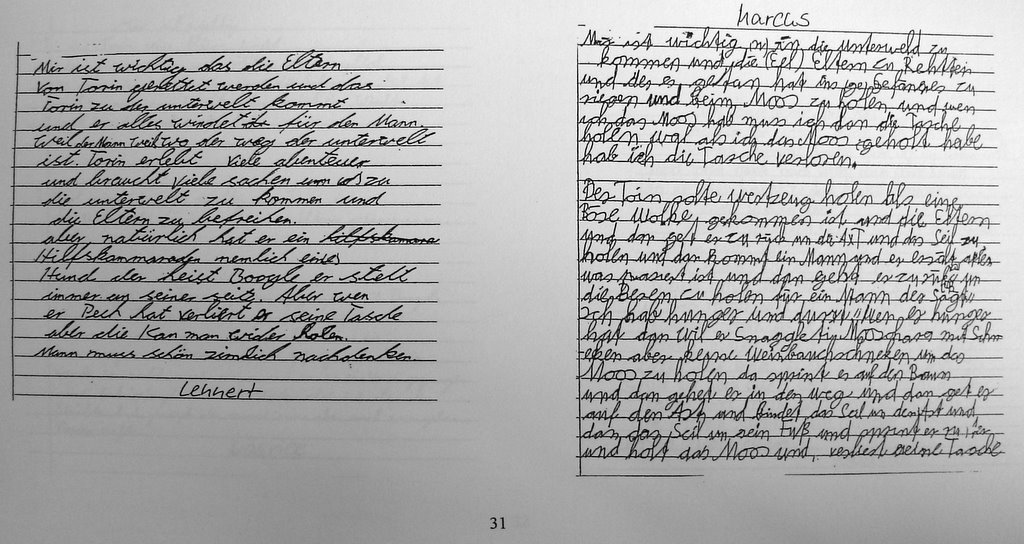 Mir ist wichtig das die Eltern
von Torin gerettet werden und das
Torin zu der unterwelt kommt
und er alles windet für den Mann.
weil der Mann weil wo der weg der unterwelt
ist. Torin erlebt viele abenteuer
und braucht viele sachen um zu
die unterwelt zu kommen und
die Eltern zu befreihen.
aber natürlich hat er ein hilfskamara
Hilfskammaraden nemlich einen
Hund der heist Boogle er stett
immer an seiner seite. Aber wen
er Pech hat verliert er seine Tasche
aber die Kan man wider holen.
Mann muss schön zimlich nachdenken.
Lennert
Marcus
ist wichtig in die unterweld zu
kommen und die Eltern zu
und der es getan hat ins Gefängnes zu
und beim Moos zu holen und wen
ich das Moos hab mus ich dan die Tasche
holen weal als ich das Moos geholt habe
hab ich die Tasche verloren.
Der Torin solte werkzeug holen als eine
Böse Wolke gekommen ist und die Eltern
und dan get er zu rück um die Axt und das Seil zu
holen und dan kommt ein Mann und er erzält
was passiert ist und dan geht er zurück um
die Beren zu holen für ein Mann der Sagt
ich hab hunger und durst Wen er hunger
hat dan Wil er Snaggletij Mooschara mit Schne
cken aber keine Weinbauchschneken um das
Moos zu holen da sprint er auf den Baum
und dan gehet er in den weg und dan get er
auf den Ast und bindet das Seil un den Ast und
dan das Seil un sein Fuß und sprint er
und holt das Moos und verliert seine Tasche
31